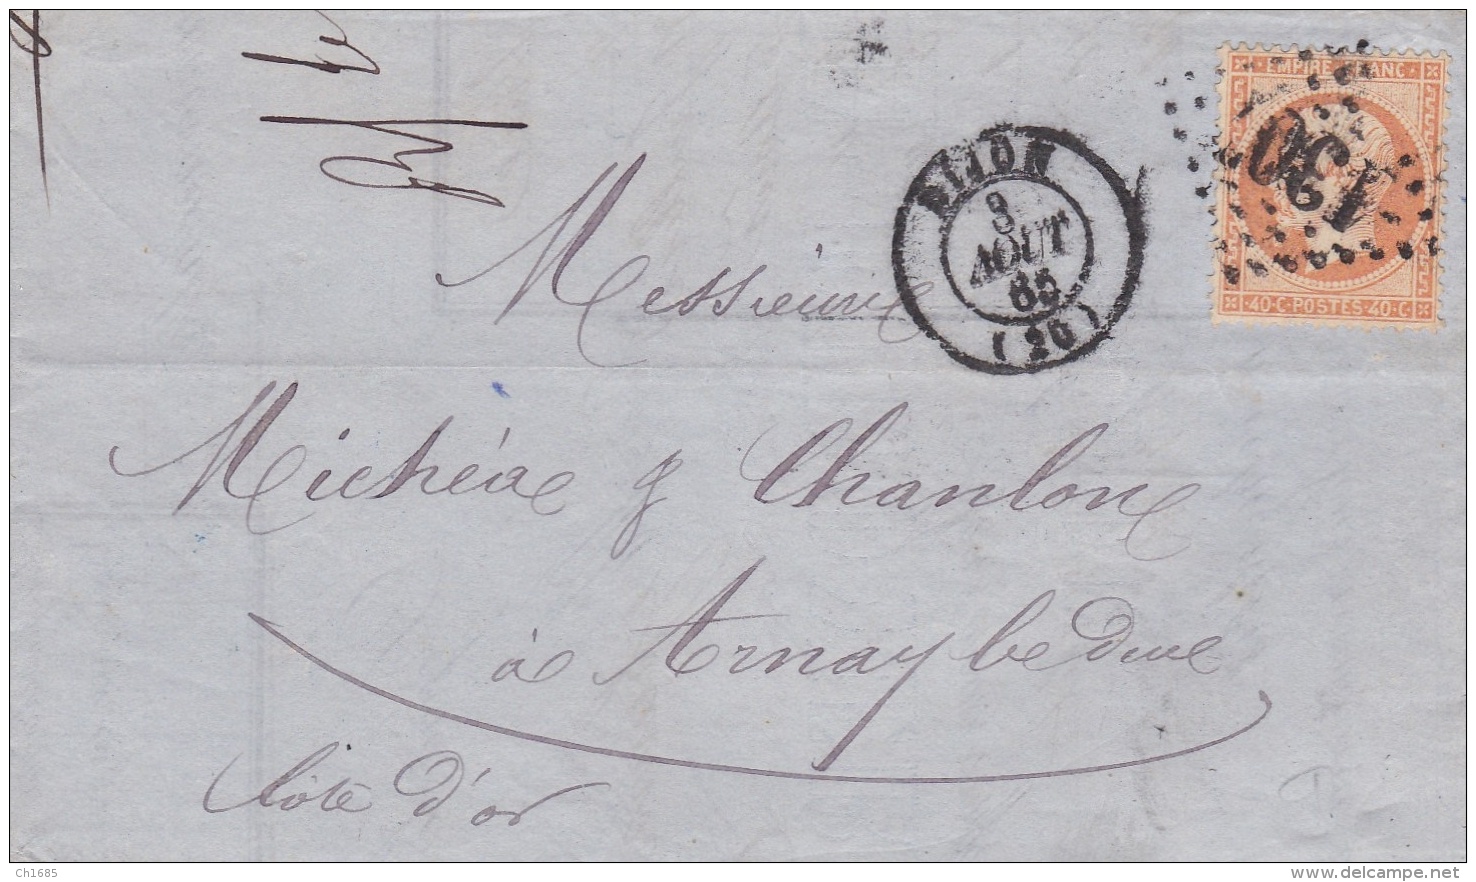 EMPIRE FRANC
1307
40·C·POSTES·40·C
DIJON
3
AOUT
65
(20)
Messieurs
Michéa & Chanlon
à Arnay le Duc
Côte d'or
Ch1685
delcampe.net